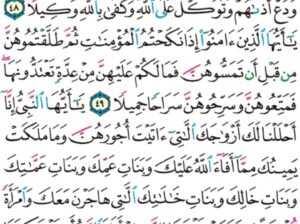 وَدَعْ أَذَىٰهُمْ وَتَوَكَّلْ عَلَى ٱللَّهِ وَكَفَىٰ بِٱللَّهِ وَكِيلًا ٤٨
يَٰٓأَيُّهَا ٱلَّذِينَ ءَامَنُوٓا۟ إِذَا نَكَحْتُمُ ٱلْمُؤْمِنَٰتِ ثُمَّ طَلَّقْتُمُوهُنَّ
مِن قَبْلِ أَن تَمَسُّوهُنَّ فَمَا لَكُمْ عَلَيْهِنَّ مِنْ عِدَّةٍ تَعْتَدُّونَهَا
فَمَتِّعُوهُنَّ وَسَرِّحُوهُنَّ سَرَاحًا جَمِيلًا ٤٩ يَٰٓأَيُّهَا ٱلنَّبِىُّ إِنَّآ
أَحْلَلْنَا لَكَ أَزْوَٰجَكَ ٱلَّٰتِىٓ ءَاتَيْتَ أُجُورَهُنَّ وَمَا مَلَكَتْ
يَمِينُكَ مِمَّآ أَفَآءَ ٱللَّهُ عَلَيْكَ وَبَنَاتِ عَمِّكَ وَبَنَاتِ عَمَّٰتِكَ
وَبَنَاتِ خَالِكَ وَبَنَاتِ خَٰلَٰتِكَ ٱلَّٰتِى هَاجَرْنَ مَعَكَ وَٱمْرَأَةً